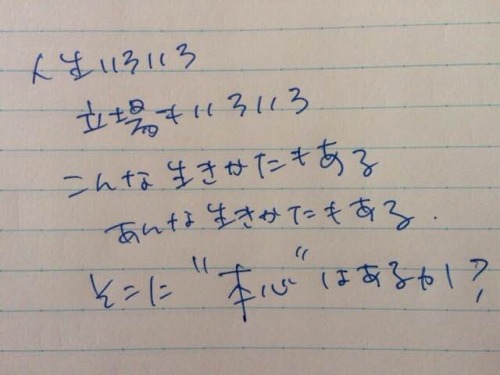 人生いろいろ
立場もいろいろ
こんな生きかたもある
あんな生きかたもある.
そこに"本心"はあるかい?